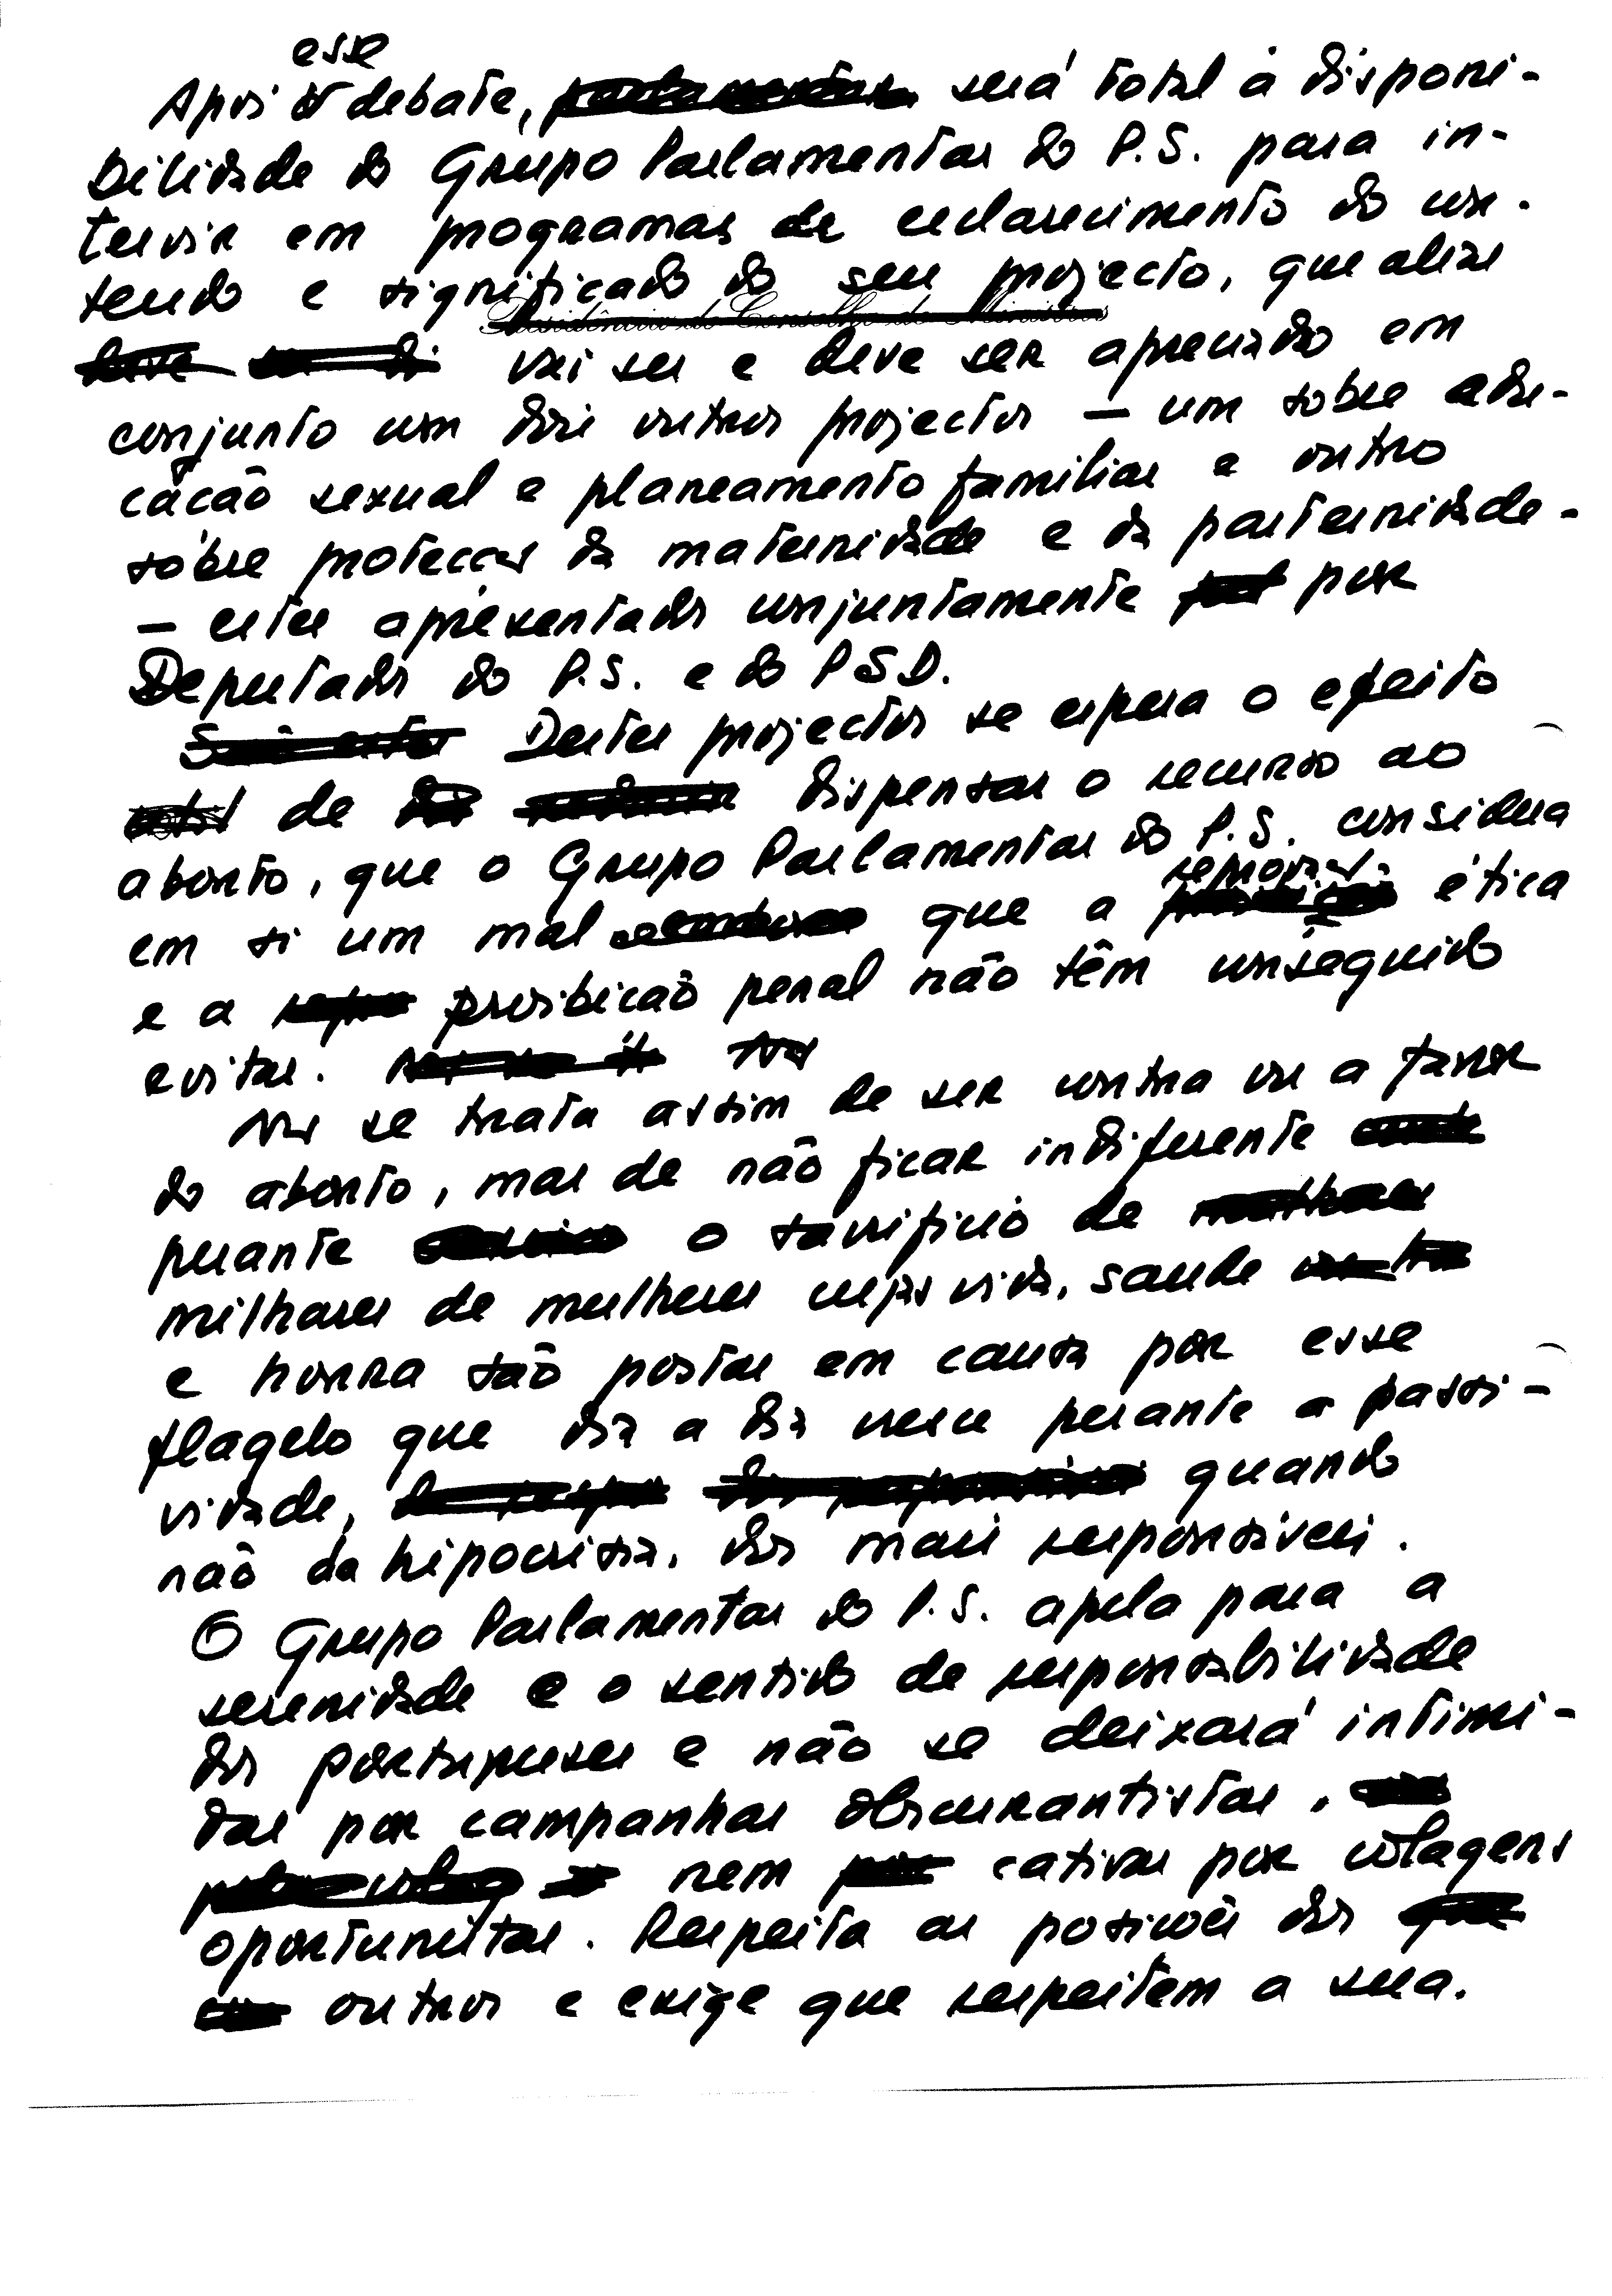 esse
Após o debate, será total a disponi-
bilidade do Grupo Parlamentar do P.S. para in-
tervir em programas de esclarecimento do con-
teúdo e significado do seu projecto, que aliás
Presidência do Conselho de Ministros
vai ser e deve ser apreciado em
conjunto com dois outros projectos — um sobre edu-
cação sexual e planeamento familiar e outro
sobre protecção da maternidade e da paternidade -
— estes apresentados conjuntamente por
Deputados do P.S. e do PSD.
Destes projectos se espera o efeito
de dispensar o recurso ao
aborto, que o Grupo Parlamentar do P.S. considera
em si um mal que a reprovação ética
e a proibição penal não têm conseguido
evitar.
Não se trata assim de ser contra ou a favor
do aborto, mas de não ficar indiferente
perante o sacrifício de
milhares de mulheres cujas vida, saude
e honra são postas em causa por esse
flagelo que dia a dia cresce perante a passi-
vidade, quando
não da hipocrisia, dos mais responsáveis.
O Grupo Parlamentar do P.S. apela para a
serenidade e o sentido de responsabilidade
dos portugueses e não se deixará intimi-
dar por campanhas obscurantistas,
nem cativar por colagens
oportunistas. Respeita as posições dos
outros e exige que respeitem a sua.